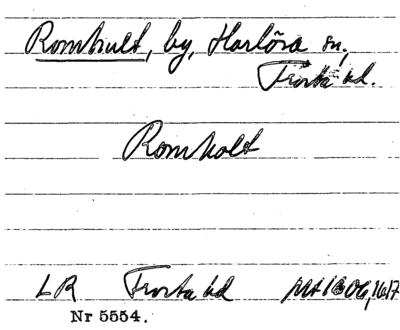 Romhult, by, Harlösa sn,
Frosta hd.
Romholt
LR Frosta hd
Nr 5554.